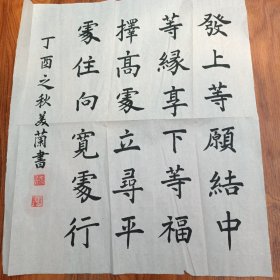 發上等願結中
等緣享下等福
擇高處立尋平
處住向寬處行
丁酉之秋美蘭書